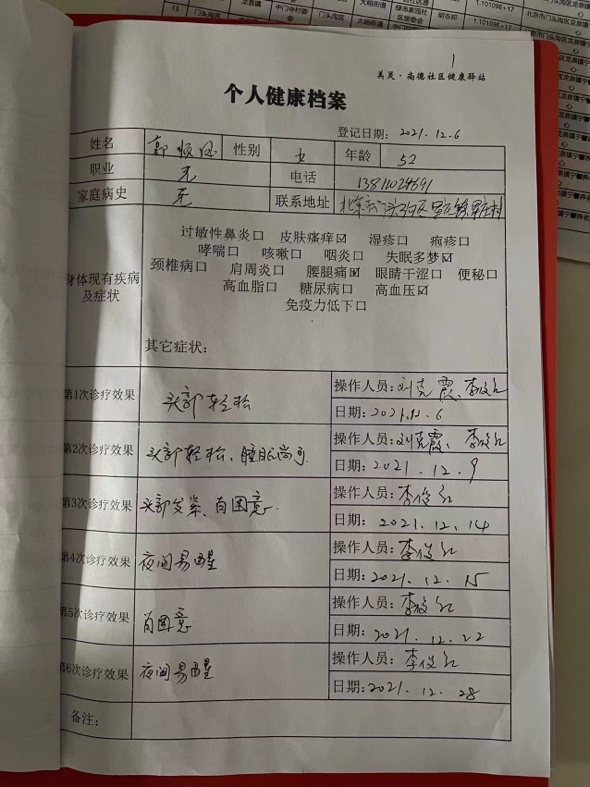 1
美灵·尚德社区健康驿站
个人健康档案
登记日期：2021.12.6
姓名 郭顺凤 性别 女 年龄 52
职业 无 电话 13811024691
家庭病史 无 联系地址 北京市门头沟区
身体现有疾病及症状
过敏性鼻炎口 皮肤瘙痒☑ 湿疹口 疱疹口
哮喘口 咳嗽口 咽炎口 失眠多梦☑
颈椎病口 肩周炎口 腰腿痛☑ 眼睛干涩口 便秘口
高血脂口 糖尿病口 高血压☑
免疫力低下口
其它症状：
第1次诊疗效果 头部轻松 操作人员：刘克霞、李俊红
日期：2021.12.6
第2次诊疗效果 头部轻松、睡眠尚可. 操作人员：刘克霞、李俊红
日期：2021.12.9
第3次诊疗效果 头部发紧、有困意. 操作人员：李俊红
日期：2021.12.14
第4次诊疗效果 夜间易醒 操作人员：李俊红
日期：2021.12.15
第5次诊疗效果 有困意 操作人员：李俊红
日期：2021.12.22
第6次诊疗效果 夜间易醒 操作人员：李俊红
日期：2021.12.28
备注：